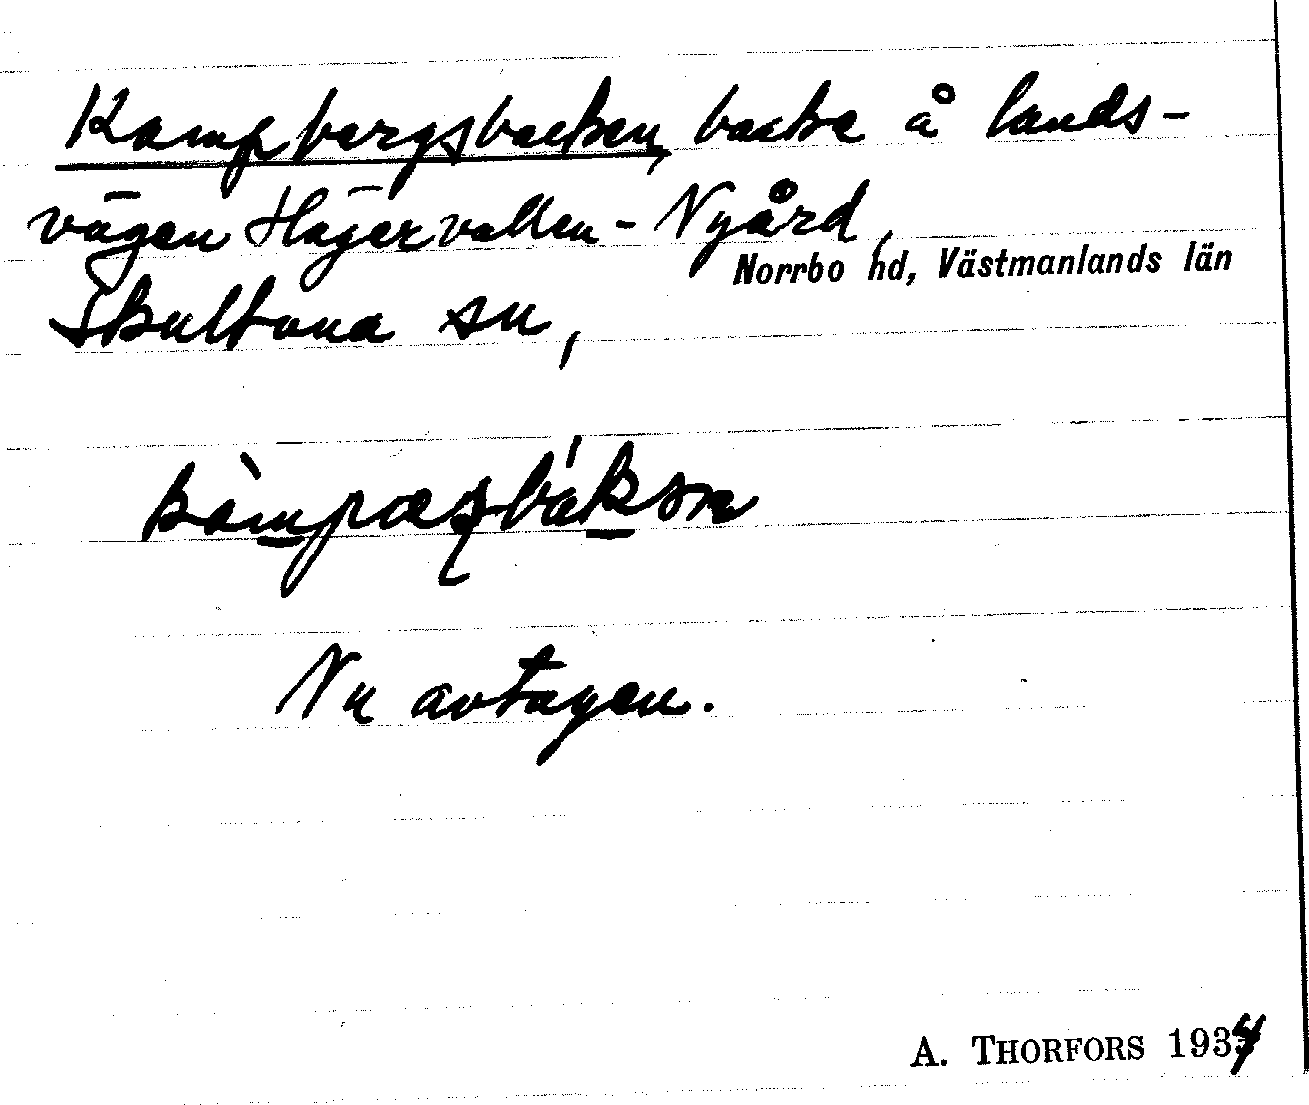 Kampbergsbacken, backe å lands-
vägen Hägervallen - Nygård,
Norrbo hd, Västmanlands län
Skultuna sn,
Nu avtagen.
A. THORFORS 1934